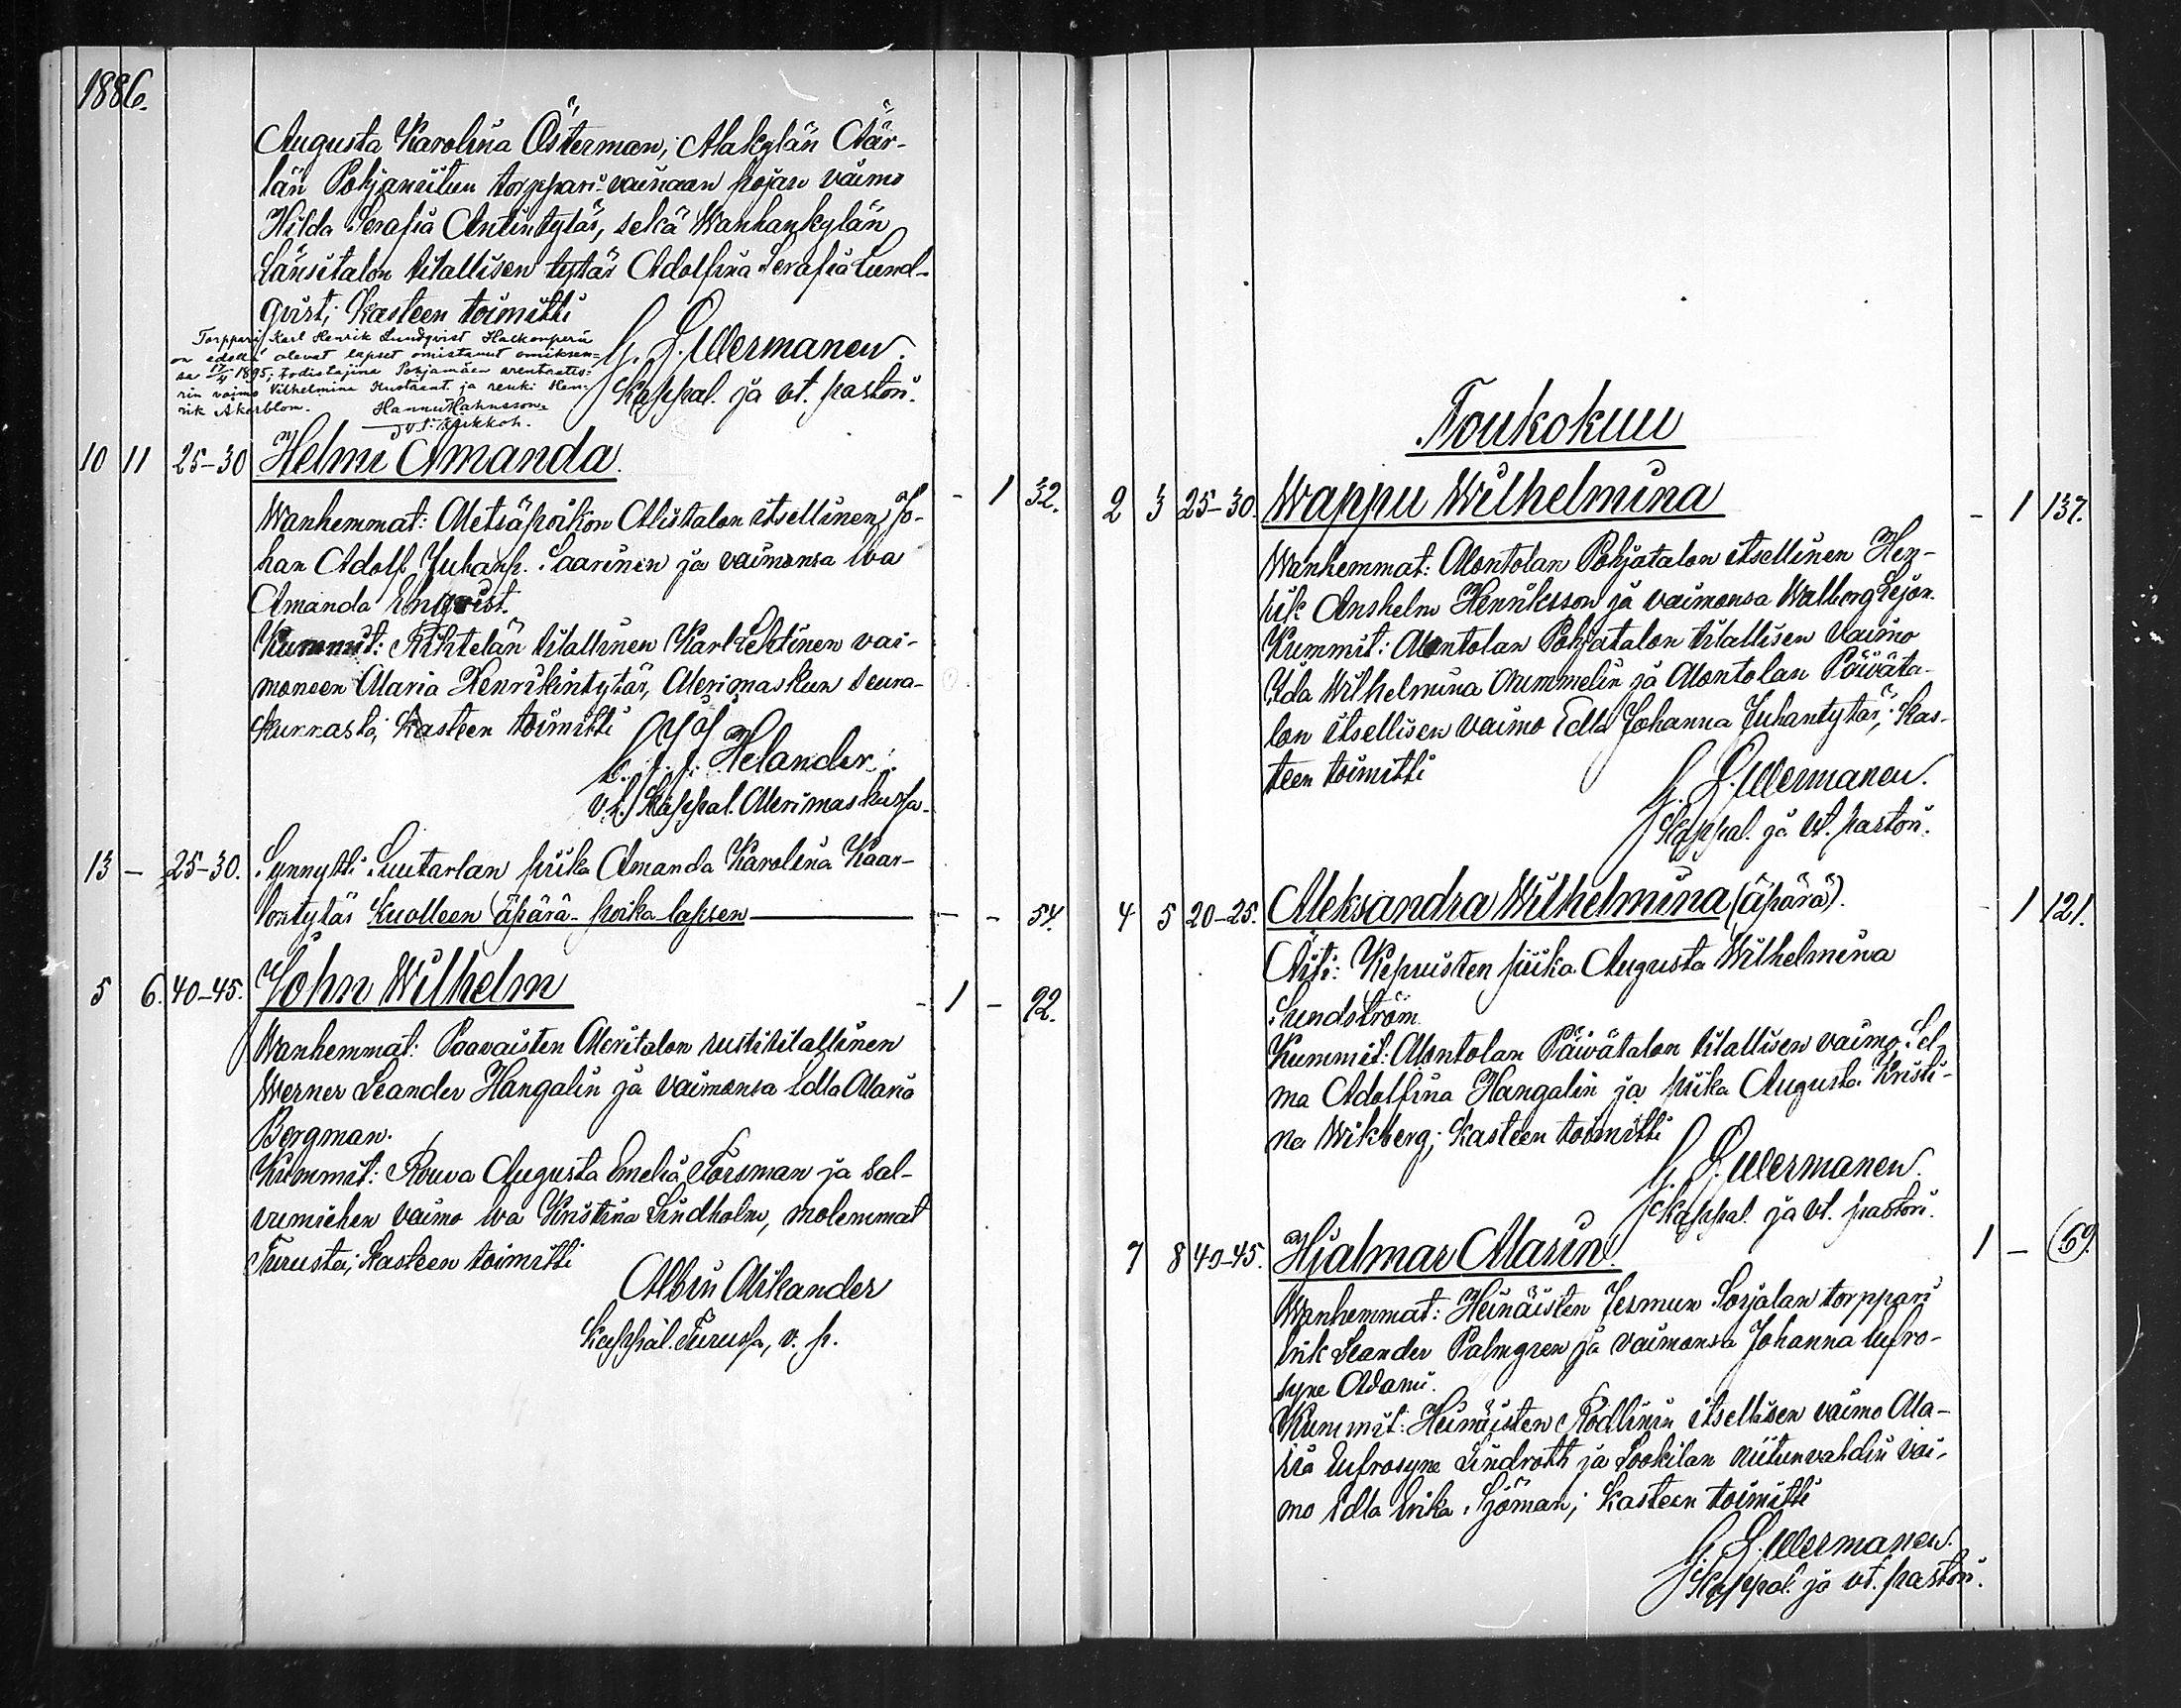 1886.
Augusta Karolina Österman; Alakylän Äär-
län Pohjaniitun torppari-vainaan pojan vaimo
Hilda Serafia Antintytär, sekä Wanhankylän
Länsitalon tilallisen tytär Adolfina Serafia Lund-
qvist; Kasteen toimitti
G. L. Mermanen.
Kappal. ja vt. pastori.
Torppari Karl Henrik Lundqvist Halkonperä
on edellä olevat lapset omistanut omiksen-
sa 17/4 1895; todistajina Pohjamäen
rin vaimo Vilhelmina ja renki Hen-
rik Akerblom.
Hannu Hahnsson.
v.t. Kirkkoh.
10 11 25-30 Helmi Amanda. - 1 32.
Wanhemmat: Metsäpoikon Alistalon itsellinen Jo-
han Adolf Juhanp. Saarinen ja vaimonsa Eva
Amanda Engqvist.
Kummit: Riihtelän tilallinen Karl Lehtinen vai-
moneen Maria Henrikintytär, Merimaskun seura-
kunnasta; Kasteen toimitti
K. J. J. Helander.
v.t. Kappal. Merimaskussa.
13 - 25-30. Synnytti Suutarlan piika Amanda Karolina Kaar-
lontytär Kuolleen äpärä-poika-lapsen - - 54.
5 6. 40-45. John Wilhelm - 1 - 92.
Wanhemmat: Paavaisten Meritalon rustitilallinen
Werner Leander Hangelin ja vaimonsa Edla Maria
Borgman.
Kummit: Rouva Augusta Emelia Forsman ja sal-
vumiehen vaimo Eva Kristina Lindholm, molemmat
Turusta; Kasteen toimitti
Albin Mikander
Kappal. Turussa, v. p.
Toukokuu
2 3 25-30. Wappu Wilhelmina - 1 137.
Wanhemmat: Montolan Pohjatalon itsellinen Hen-
rik Anshelm Henriksson ja vaimonsa Walborg Lejon.
Kummit: Montolan Pohjatalon tilallisen vaimo
Ida Wilhelmina Nummelin ja Montolan Päiväta-
lon itsellisen vaimo Edla Johanna Juhantytär; Kas-
teen toimitti
G. L. Mermanen.
Kappal. ja vt. pastori.
4 5 20-25. Aleksandra Wilhelmina (äpärä). - 1 121.
Äiti: Kepuisten piika Augusta Wilhelmina
Sundström.
Kummit: Montolan Päivätalon tilallisen vaimo Sel-
ma Adolfina Hangelin ja piika Augusta Kristi-
na Wikberg; Kasteen toimitti
G. L. Mermanen.
Kappal. ja vt. pastori.
7 8 40-45. Hjalmar Marin. 1 - (59.
Wanhemmat: Heinäisten Jermun Sorjalan torppari
Erik Leander Palmgren ja vaimonsa Johanna Eufro-
syne Adami.
Kummit: Heinäisten Rödlinin itsellisen vaimo Ma-
ria Eufrosyne Lindroth ja Lookilan niitunvahdin vai-
mo Edla Erika Sjöman; Kasteen toimitti
G. L. Mermanen.
Kappal. ja vt. pastori.